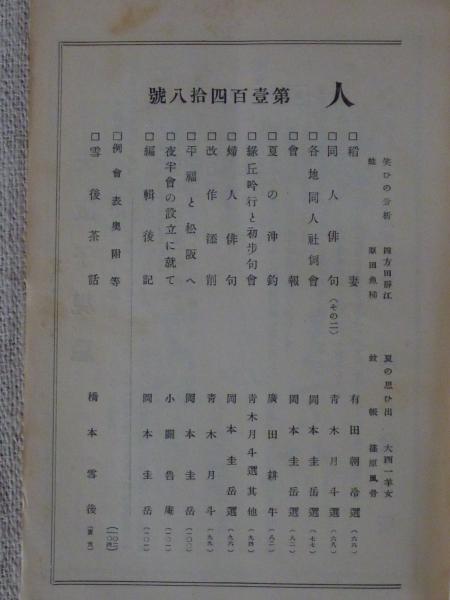 人　第壹百四拾八號
笑ひの分析　四方田靜江　夏の思ひ出　大西一羊女
蚊　原田魚梯　蚊帳　篠原風骨
□稻妻　有田朝冷選（六六）
□同人俳句（その二）　青木月斗選（六九）
□各地同人社例會　岡本圭岳選（七七）
□會報　岡本圭岳選（八二）
□夏の沖釣　廣田耕牛（八二）
□綠丘吟行と初步句會　青木月斗選其他（九四）
□婦人俳句　岡本圭岳選（九六）
□改作添削　青木月斗（九九）
□平福と松阪へ　岡本圭岳（一〇〇）
□夜半會の設立に就て　小園魯庵（一〇一）
□編輯後記　岡本圭岳（一〇二）
□例會表奧附等
□雪後茶話　橋本雪後